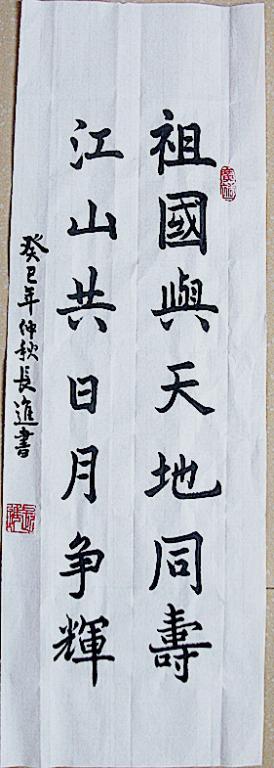 祖國與天地同壽
江山共日月争輝
癸巳年仲秋長進書